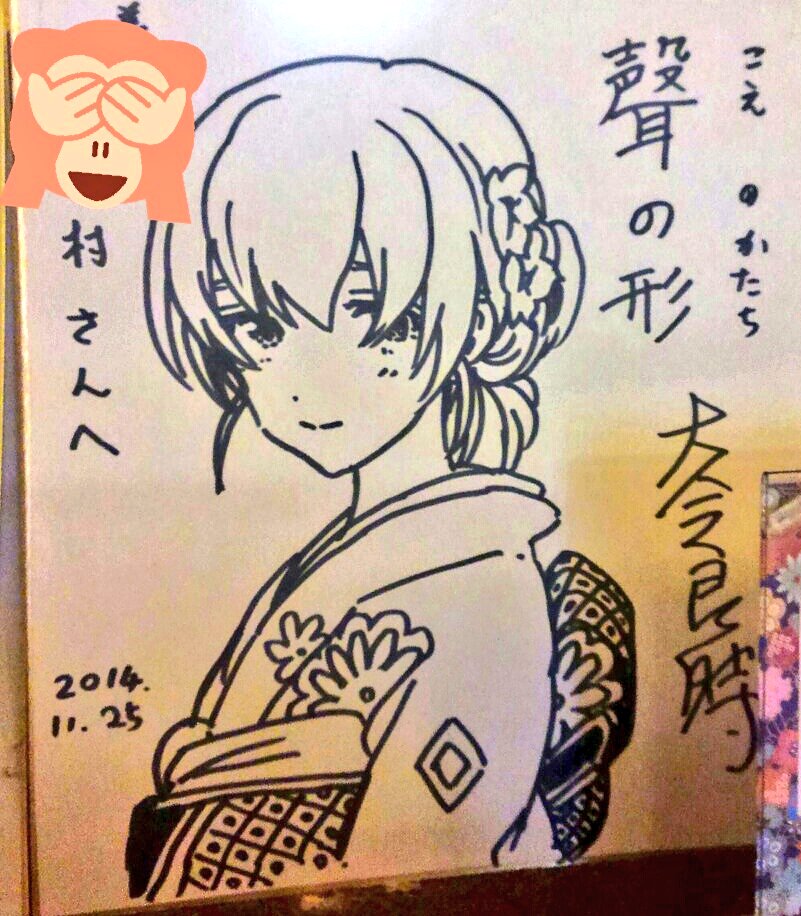 こえ の かたち
聲の形
大今良時
村さんへ
2014.
11.25